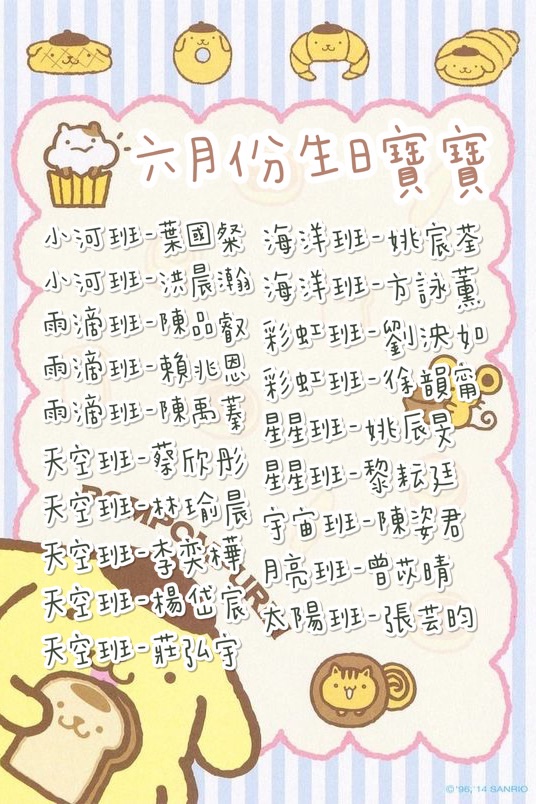 六月份生日寶寶
小河班-葉國粲
小河班-洪晨瀚
雨滴班-陳品叡
雨滴班-賴兆恩
雨滴班-陳禹蓁
天空班-蔡欣彤
天空班-林瑜晨
天空班-李奕樺
天空班-楊岱宸
天空班-莊弘宇
海洋班-姚宸荃
海洋班-方詠薰
彩虹班-劉泱如
彩虹班-徐韻甯
星星班-姚辰旻
星星班-黎耘廷
宇宙班-陳姿君
月亮班-曾苡晴
太陽班-張芸昀
POMPOMPURIN
©'96,'14 SANRIO